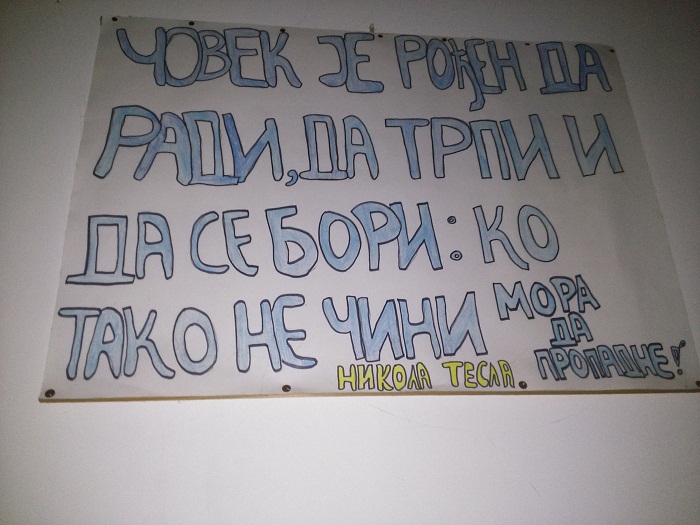 ЧОВЕК ЈЕ РОЂЕН ДА
РАДИ, ДА ТРПИ И
ДА СЕ БОРИ: КО
ТАКО НЕ ЧИНИ МОРА
ДА
ПРОПАДНЕ!
НИКОЛА ТЕСЛА.